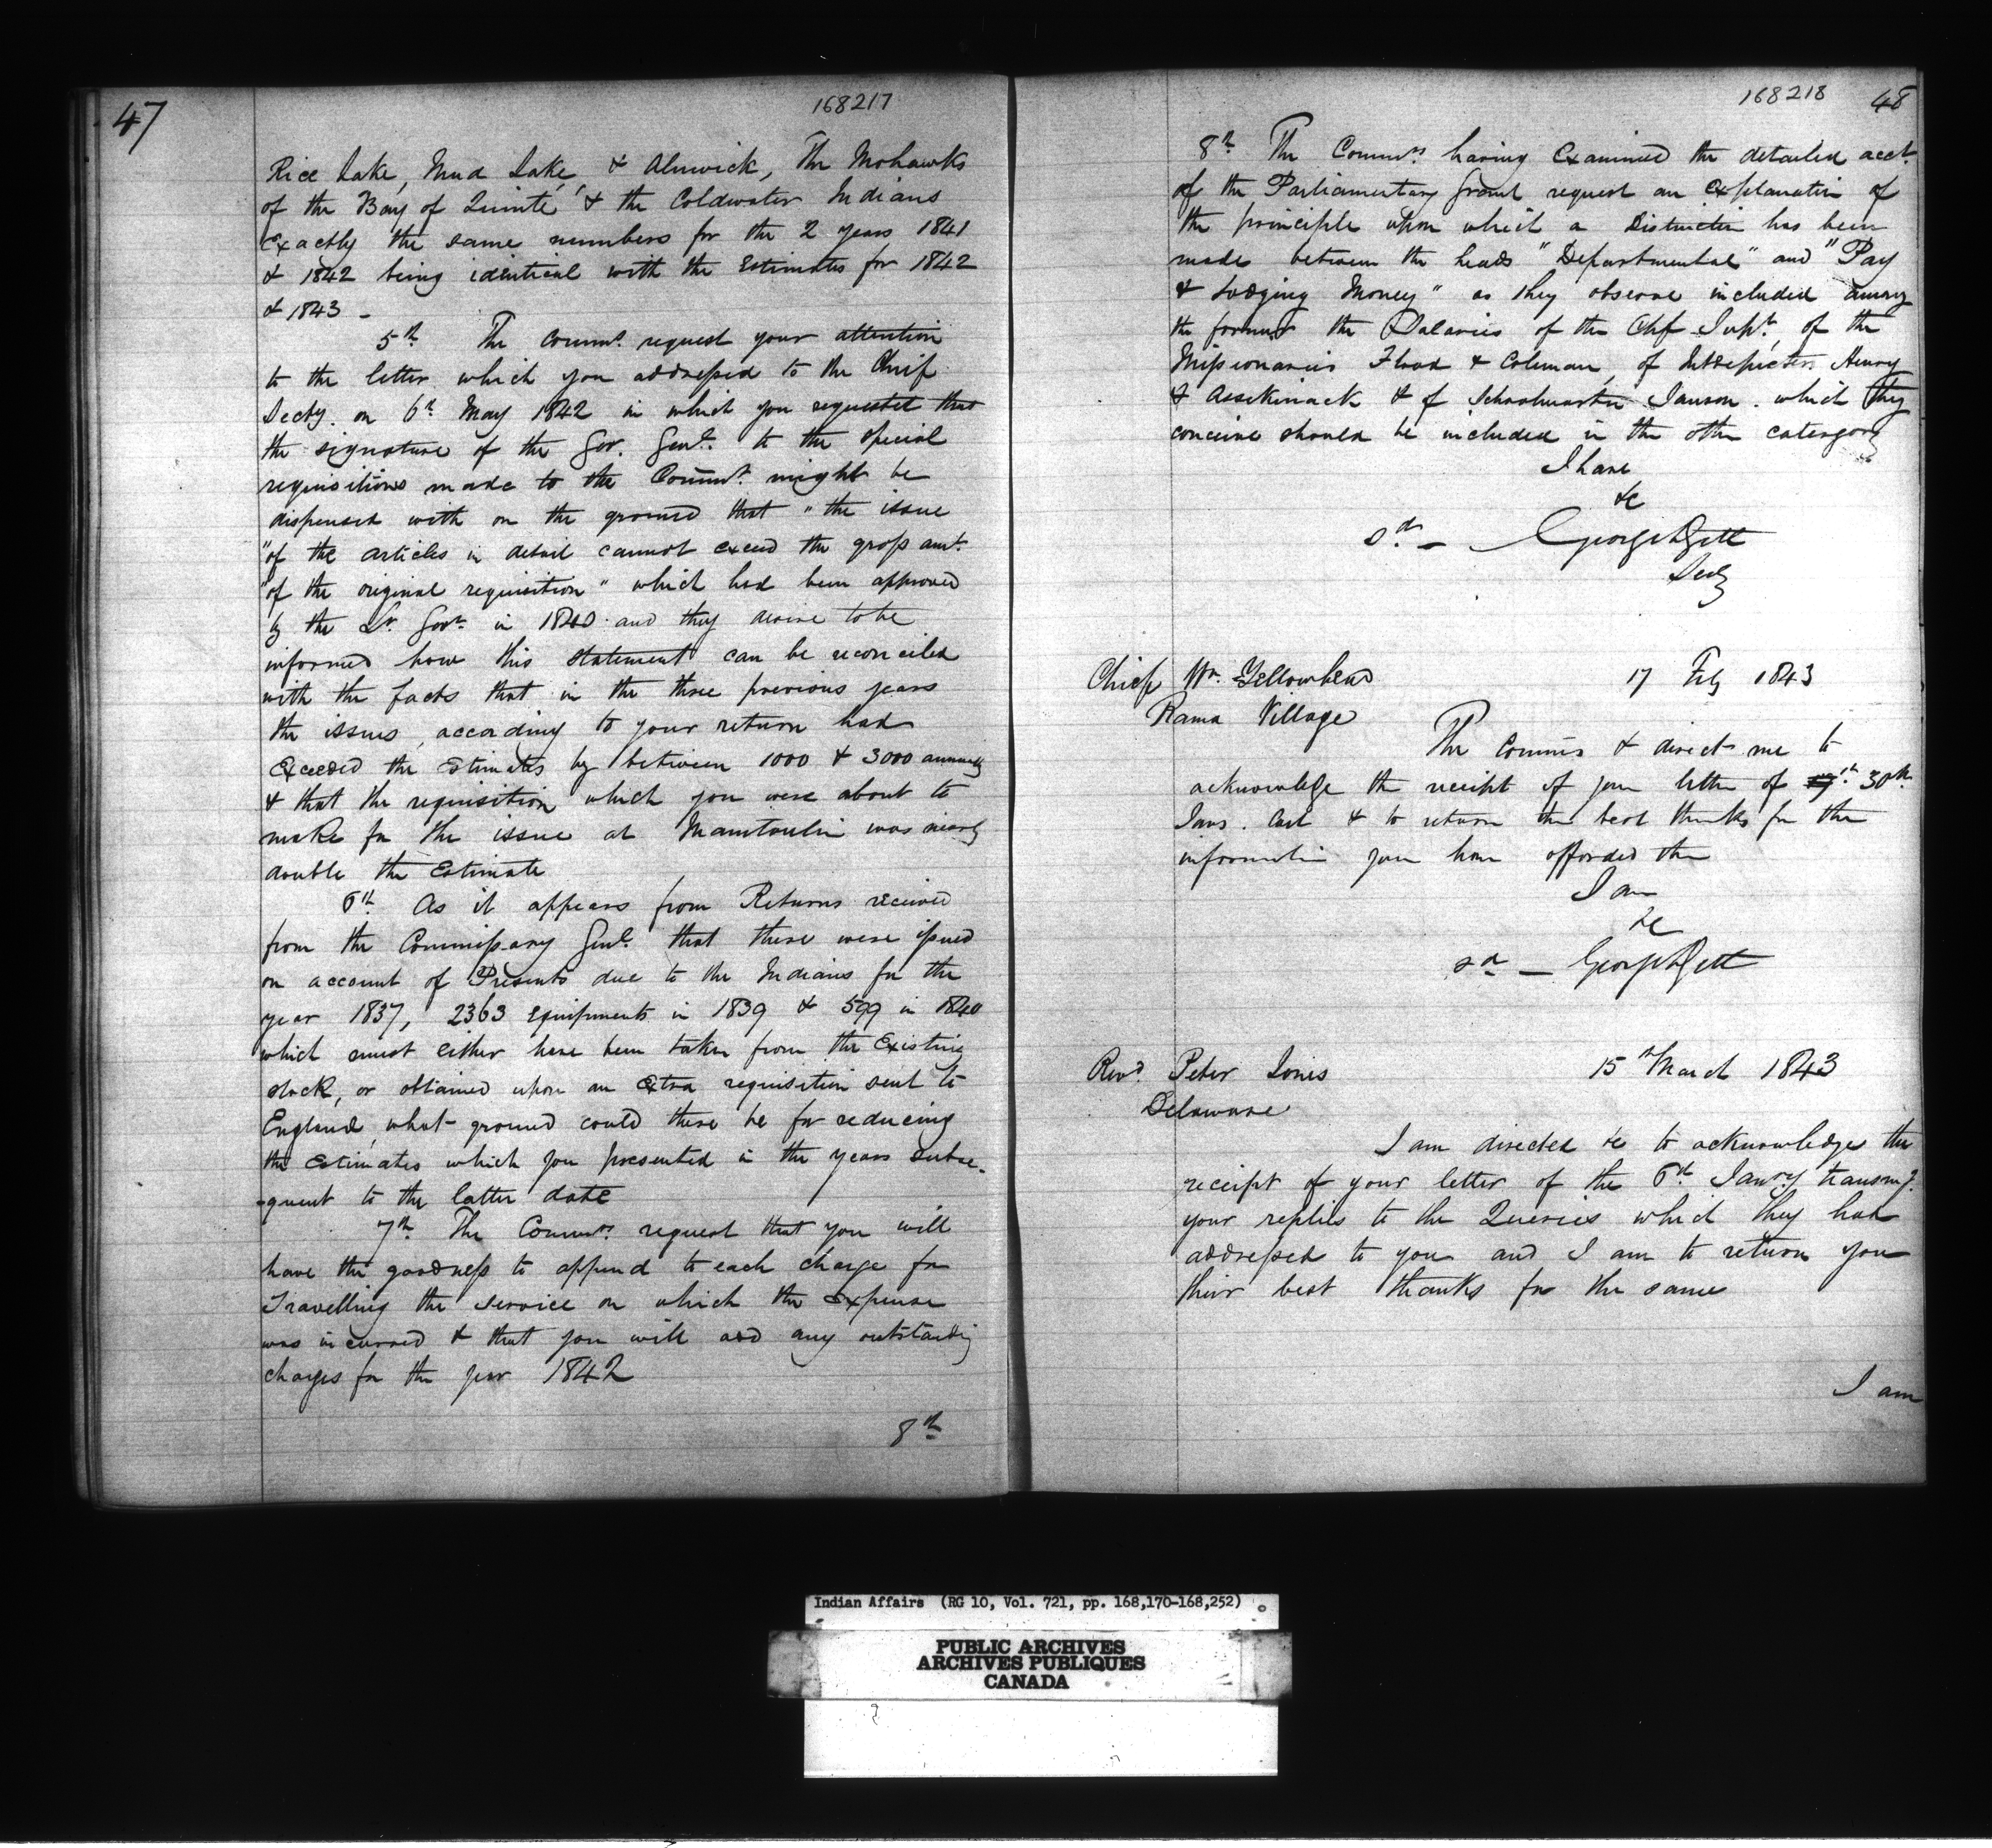 47
168217
Rice Lake, Mud Lake, & Alnwick, The Mohawks
of the Bay of Quinté & the Coldwater Indians
exactly the same numbers for the 2 years 1841
& 1842 being identical with the Estimates for 1842
& 1843 -
5th The Commrs. request your attention
to the letter which you addressed to the Chief
Secty. on 6th May 1842 in which you requested that
the signature of the Gov. Genl. to the special
requisitions made to the Commt. might be
dispensed with on the ground that "the issue
"of the articles in detail cannot exceed the gross amt.
"of the original requisition" which had been approved
by the Lt. Govr. in 1840 and they desire to be
informed how this statement can be reconciled
with the facts that in the three previous years
the issues, according to your return had
exceeded the estimates by between 1000 & 3000 annually
& that the requisition which you were about to
make for the issue at Manitoulin was nearly
double the Estimate
6th As it appears from Returns received
from the Commissary Genl. that there were issued
on account of Presents due to the Indians for the
year 1837, 2363 equipments in 1839 & 599 in 1840
which must either have been taken from the Existing
stock, or obtained upon an Extra requisition sent to
England, what ground could there be for reducing
the Estimates which you presented in the years subse-
-quent to the latter date
7th The Commrs. request that you will
have the goodness to append to each charge for
Travelling the service on which the Expense
was incurred & that you will add any outstanding
charges for the year 1842
8th
168218
48
8th The Commrs. having Examined the detailed acct.
of the Parliamentary Grant request an explanation of
the principle upon which a Distinction has been
made between the heads "Departmental" and "Pay
& Lodging Money" as they observe included among
the former the Salaries of the Chf Supt., of the
Missionaries Flood & Coleman, of Interpreters Henry
& Assekinack & of Schoolmaster Janson. which they
conceive should be included in the other catergory
I have
&c
sd. - George R Gett
Secty
Chief Wm. Yellowhead
17 Feby 1843
Rama Village
The Commrs & direct me to
acknowledge the receipt of your letter of 30th.
Jany. last & to return their best thanks for the
information you have afforded them
I am
&c
sd - George R Gett
Revd. Peter Jones
15th March 1843
Delaware
I am directed &c to acknowledge the
receipt of your letter of the 6th. Janry transmg.
your replies to the Queries which they had
addressed to you and I am to return you
their best thanks for the same
I am
Indian Affairs (RG 10, Vol. 721, pp. 168,170-168,252)
PUBLIC ARCHIVES
ARCHIVES PUBLIQUES
CANADA